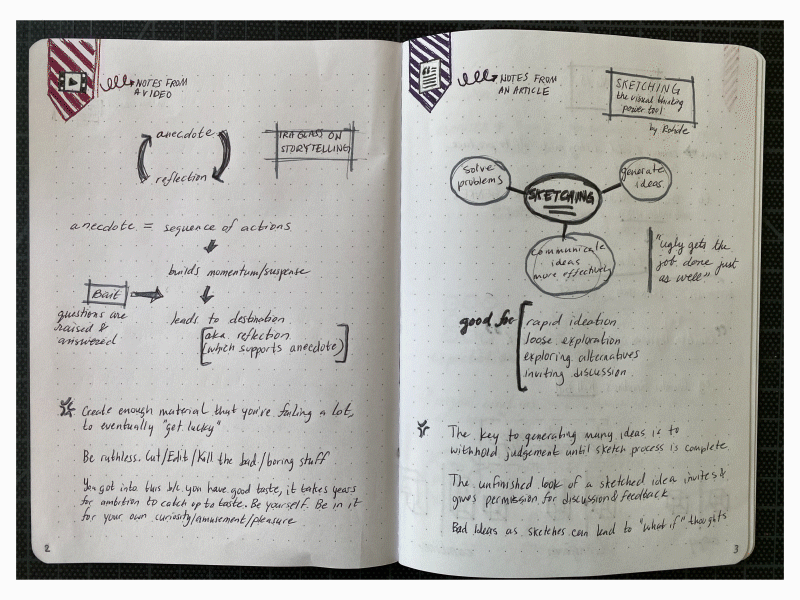 NOTES FROM
A VIDEO
anecdote
reflection
IRA GLASS ON
STORYTELLING
anecdote = sequence of actions
builds momentum/suspense
Bait
questions are
raised &
answered
leads to destination
aka reflection
(which supports anecdote)
Create enough material that you're failing a lot,
to eventually "get lucky"
Be ruthless. Cut/Edit/Kill the bad/boring stuff
You got into this b/c you have good taste, it takes years
for ambition to catch up to taste. Be yourself. Be in it
for your own curiosity/amusement/pleasure
2
NOTES FROM
AN ARTICLE
SKETCHING
the visual thinking
power tool
by Rohde
solve
problems
SKETCHING
generate
ideas
communicate
ideas
more effectively
"ugly gets the
job done just
as well"
good for
rapid ideation
loose exploration
exploring alternatives
inviting discussion
The key to generating many ideas is to
withhold judgement until sketch process is complete.
The unfinished look of a sketched idea invites &
gives permission for discussion & feedback
Bad Ideas as sketches can lead to "what if" thoughts
3